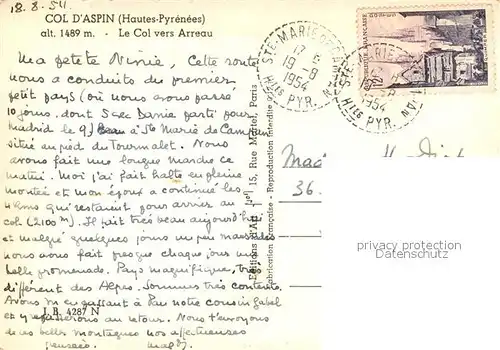 18-8-54.
COL D'ASPIN (Hautes-Pyrénées)
alt. 1489 m. - Le Col vers Arreau
Ma petite Ninie, Cette route
nous a conduits du premier
petit pays (où nous avons passé
10 jours, dont 5 avec Dania partie pour
Madrid le 9) à Ste Marie de Campan
située au pied du Tourmalet. Nous
avons fait une longue marche ce
matin. Moi j'ai fait halte en pleine
montée et mon époux a continué les
4 kms qui restaient pour arriver au
col (2100 m). Il fait très beau aujourd'hui
et malgré quelques jours un peu maussades
nous avons fait presque chaque jour une
belle promenade. Pays magnifique, très
différent des Alpes. Sommes très contents.
Avons m en passant à Pau notre cousin
et y au retour. Nous t'envoyons
de ces belles montagnes nos affectueuses
pensées.
J. B. 4287 N
Editions d'Art 15, Rue Martel, Paris
Fabrication Française - Reproduction Interdite
STE-MARIE DE CAMPAN
17 H
19-8
1954
Htes PYR.
STE-MARIE
1954
Htes PYR.
FRANÇAISE
Mad
36.
privacy protection
Datenschutz